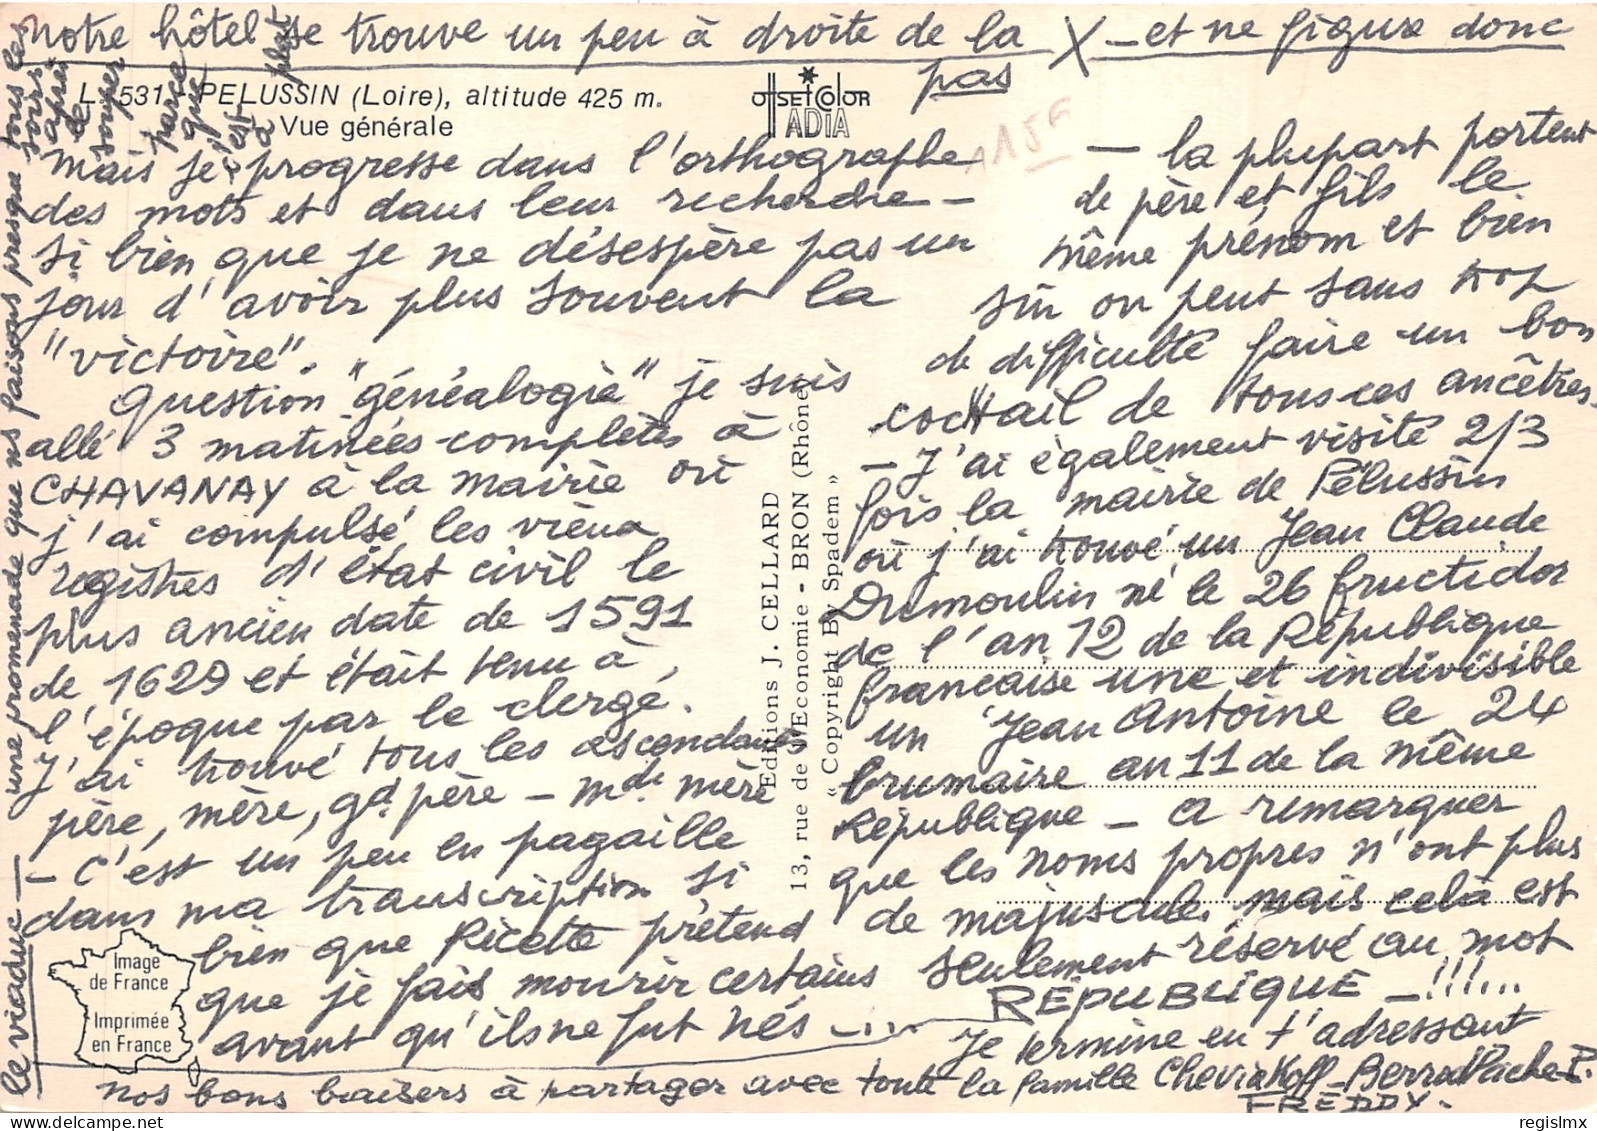 Notre hôtel se trouve un peu à droite de la X – et ne figure donc
pas
L. 531 - PELUSSIN (Loire), altitude 425 m.
Vue générale
OFFSET COLOR
ADIA
115F
Mais je progresse dans l'orthographe
des mots et dans leur recherche –
si bien que je ne désespère pas un
jour d'avoir plus souvent la
"victoire".
Question "généalogie" je suis
allé 3 matinées complètes à
CHAVANAY à la mairie où
j'ai compulsé les vieux
registres d'état civil le
plus ancien date de 1591
de 1629 et était tenu à
l'époque par le clergé.
J'ai trouvé tous les ascendants
père, mère, gd. père – mde. mère
– C'est un peu en pagaille
dans ma transcription si
bien que Ricette prétend
que je fais mourir certains
avant qu'ils ne fut nés –....
– la plupart portent
de père et fils le
même prénom et bien
sûr on peut sans trop
de difficulté faire un bon
cocktail de tous ces ancêtres.
– J'ai également visité 2/3
fois la mairie de Pélussin
où j'ai trouvé un Jean Claude
Dumoulin né le 26 fructidor
de l'an 12 de la République
française une et indivisible
un Jean Antoine le 24
brumaire an 11 de la même
République – a remarquer
que les noms propres n'ont plus
de majuscule, mais celà est
seulement réservé au mot
RÉPUBLIQUE –!!!...
Je termine en t'adressant
nos bons baisers à partager avec toute la famille
FREDDY.
Editions J. CELLARD
13, rue de l'Economie - BRON (Rhône)
« Copyright By Spadem »
Image
de France
Imprimée
en France
le viaduc – une promenade que ns faisons presque tous les
soirs
après
de
souper
parce
que
c'est
à plat
regislmx